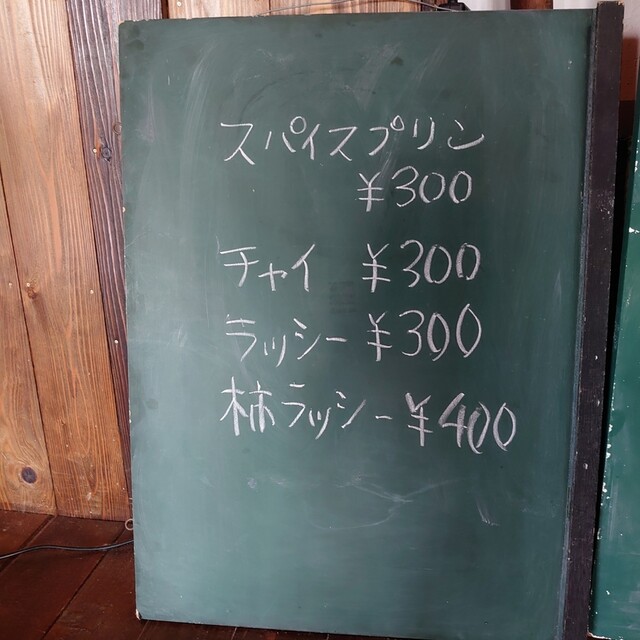 スパイスプリン
¥300
チャイ ¥300
ラッシー ¥300
柿ラッシー ¥400